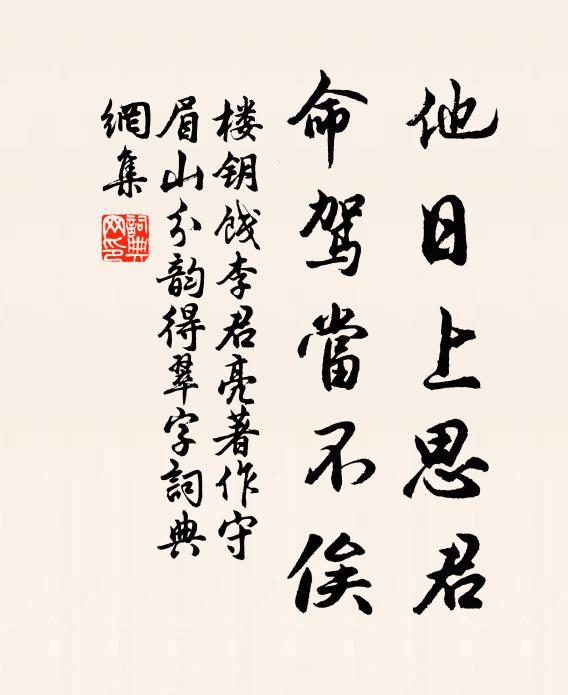 他日上思君
命驾當不俟
楼钥饯李君亮著作守
眉山分韵得翠字詞典
網集
詞典
网印